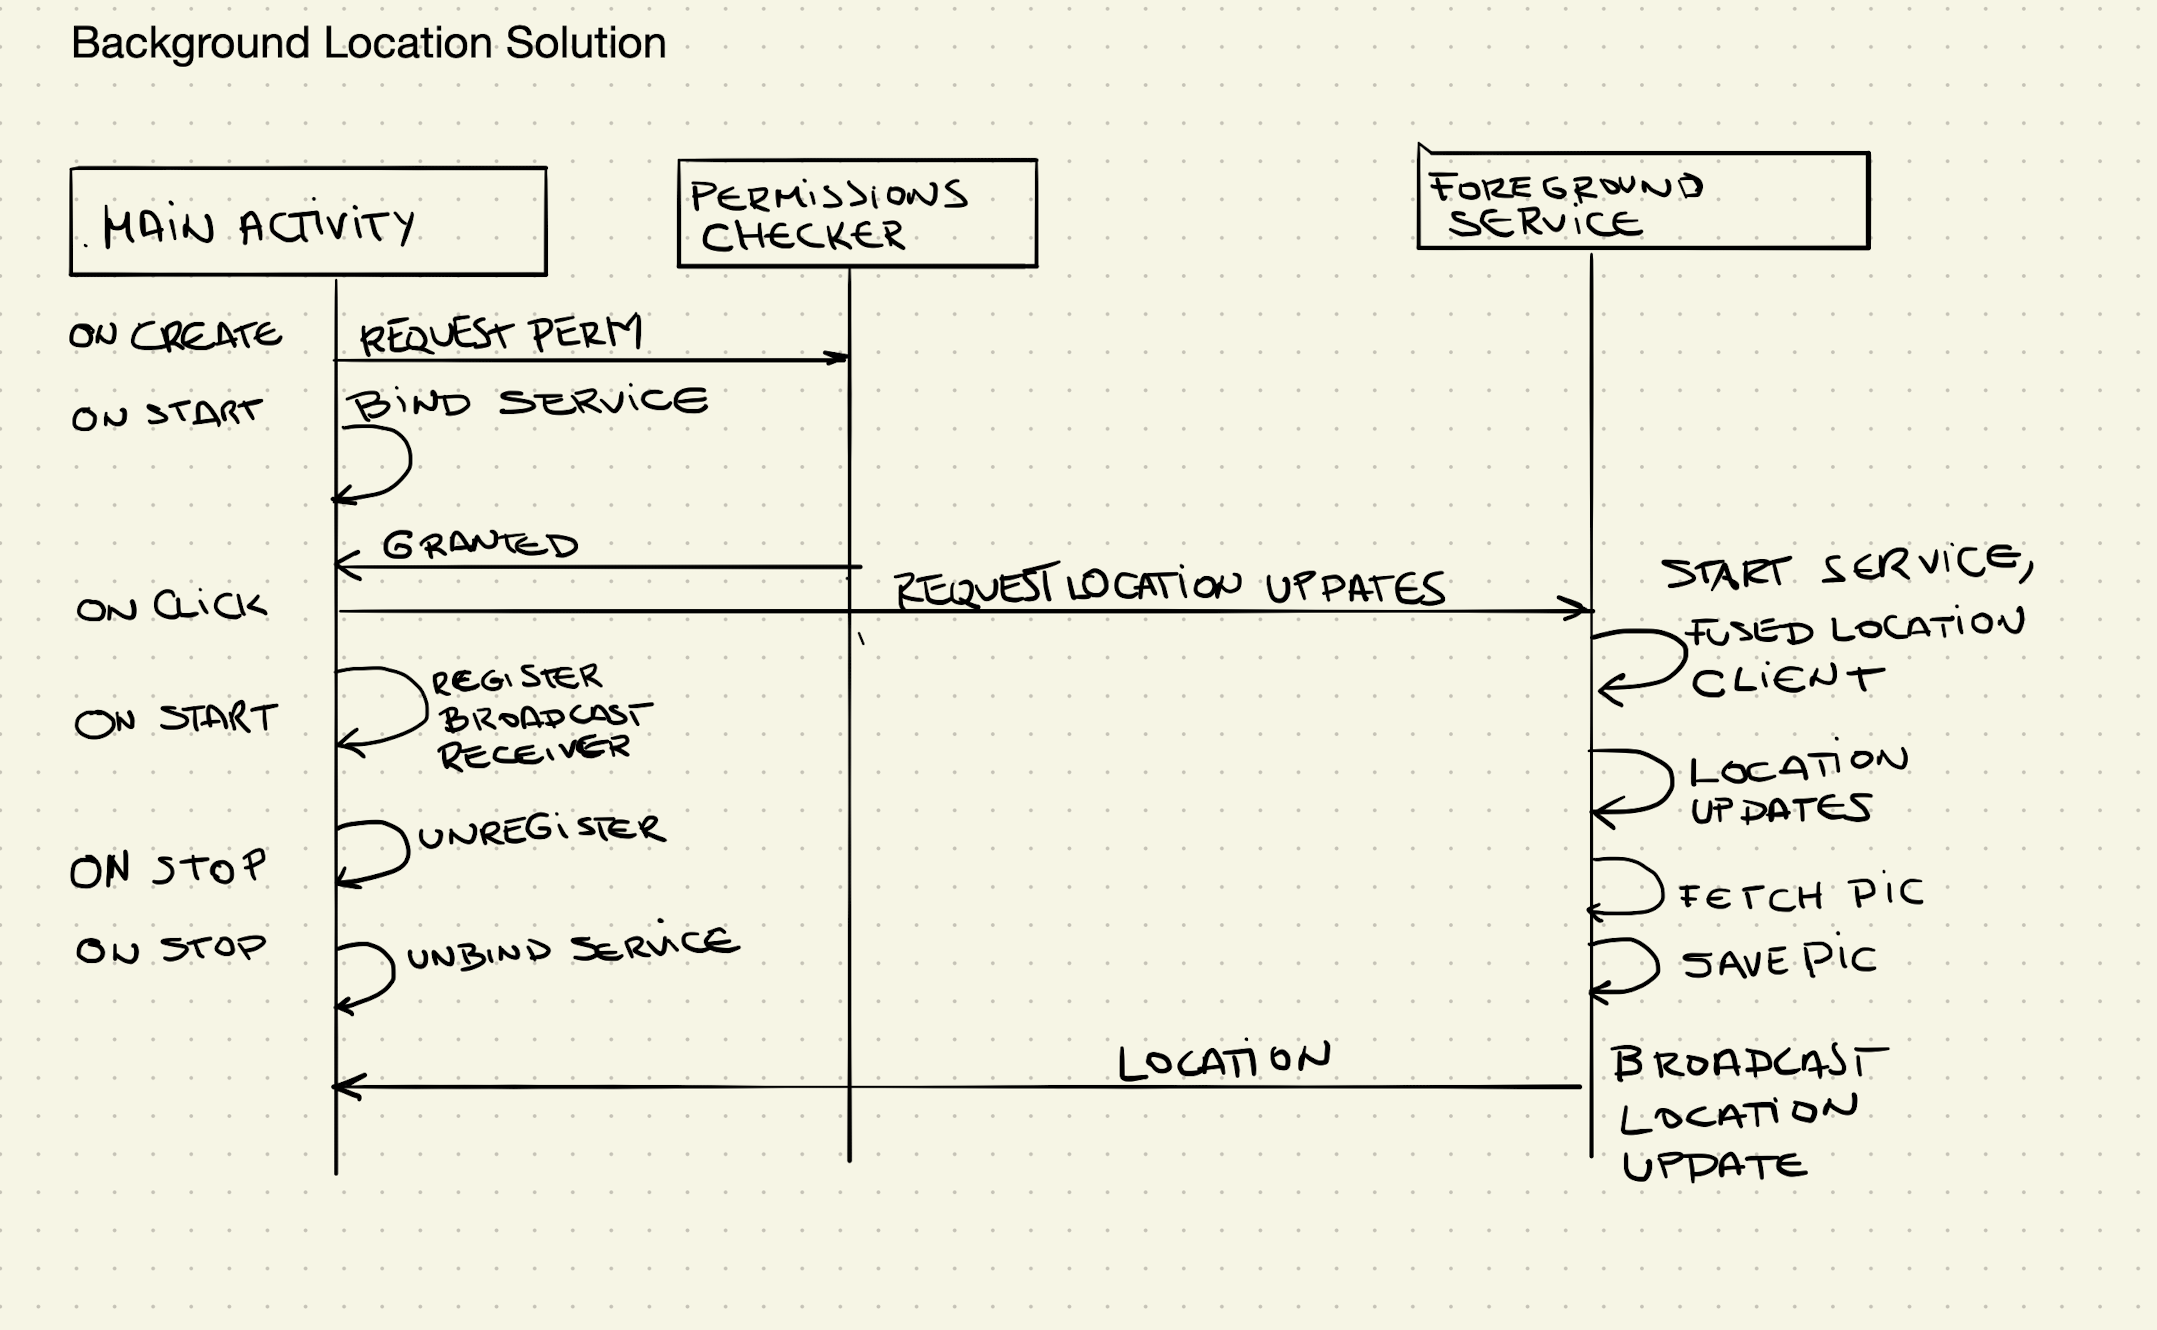 Background Location Solution
MAiN ACTiViTY
PERMiSSiONS
CHECKER
FOREGROUND
SERViCE
ON CREATE
REQUEST PERM
ON START
BiND SERViCE
GRANTED
ON CLiCK
REQUEST LOCATiON UPDATES
START SERViCE,
FUSED LOCATiON
CLiENT
ON START
REGiSTER
BROADCAST
RECEiVER
LOCATiON
UPDATES
ON STOP
UNREGiSTER
FETCH PiC
ON STOP
UNBiND SERViCE
SAVE PiC
LOCATiON
BROADCAST
LOCATiON
UPDATE